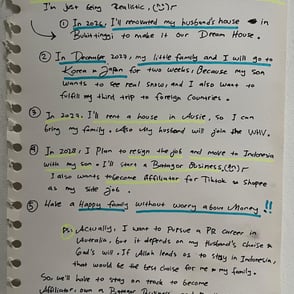 I'm just being Realistic, (
① In 2026, I'll renovated my husband's house in
Bukittinggi to make it our Dream House.
② In December 2027, my little family and I will go to
Korea n Japan for two weeks, Because my son
wants to see real snow, and I also want to
fulfill my third trip to foreign Countries.
③ In 2027, I'll rent a house in Aussie, so I can
bring my family. Also my husband will join the WHV.
④ In 2028, I Plan to resign the job and move to Indonesia
with my son. I'll start a Batagor Business,
I also wants to become affiliator for Tiktok & Shopee
as my side job.
⑤ Have a Happy family without worry about Money !!
Ps: Actually, I want to pursue a PR career in
Australia, but it depends on my Husband's choise &
God's will. If Allah leads us to stay in Indonesia,
that would be the best choise for me n my family.
So we'll have to stay on track to become
Affiliator, own a Batagor Business, and